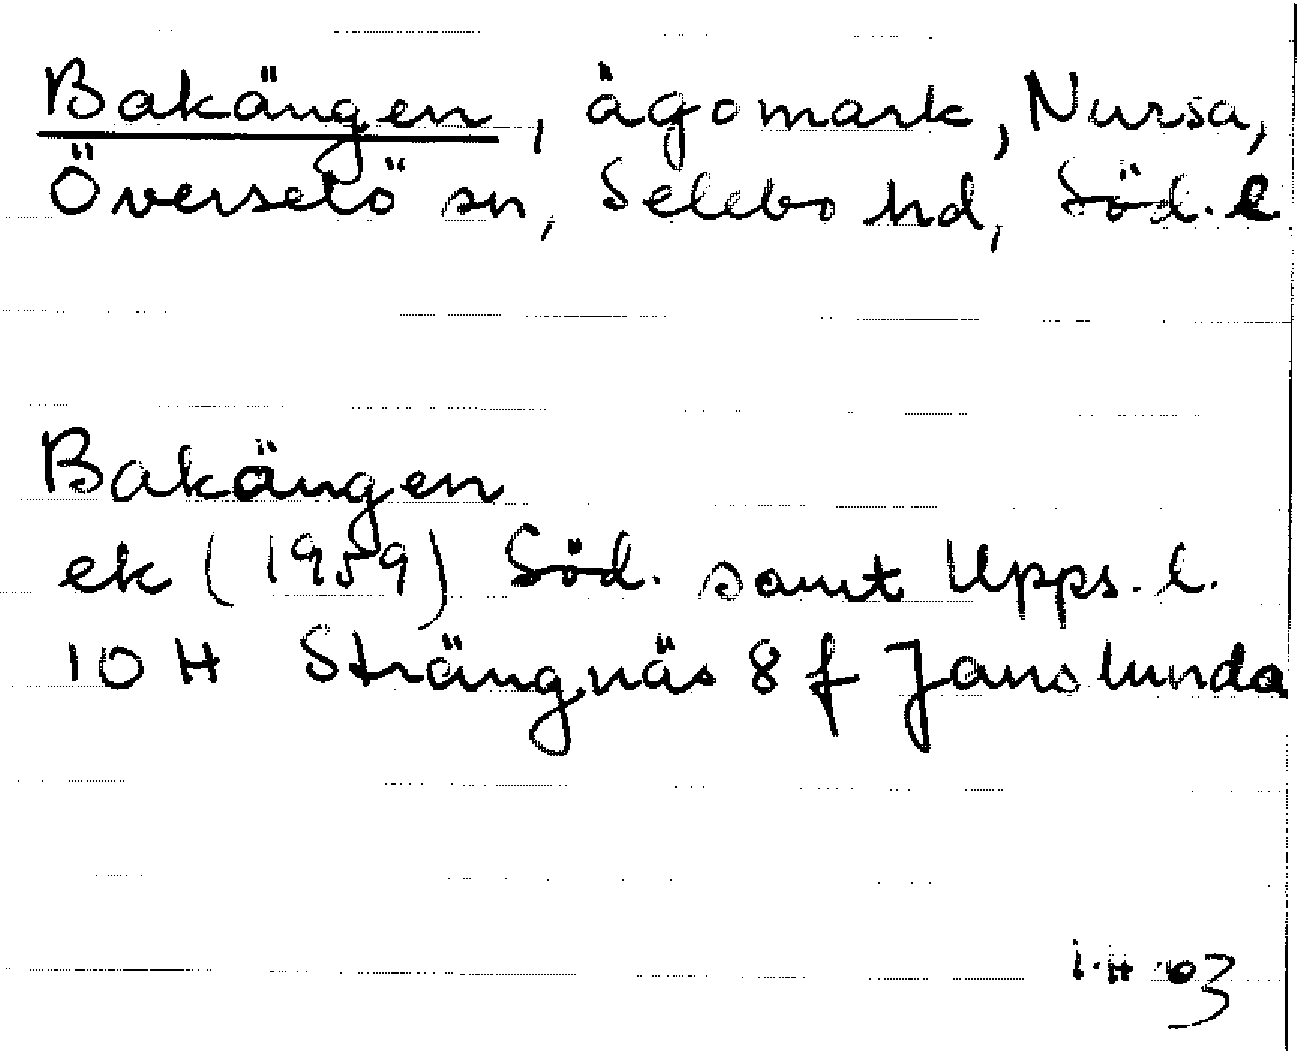 Bakängen, ägomark, Nursa,
Överselö sn, Selebo hd, Söd. l
Bakängen
ek (1959) Söd. samt Upps. l.
10 H Strängnäs 8 f Janslunda
i.H. 03